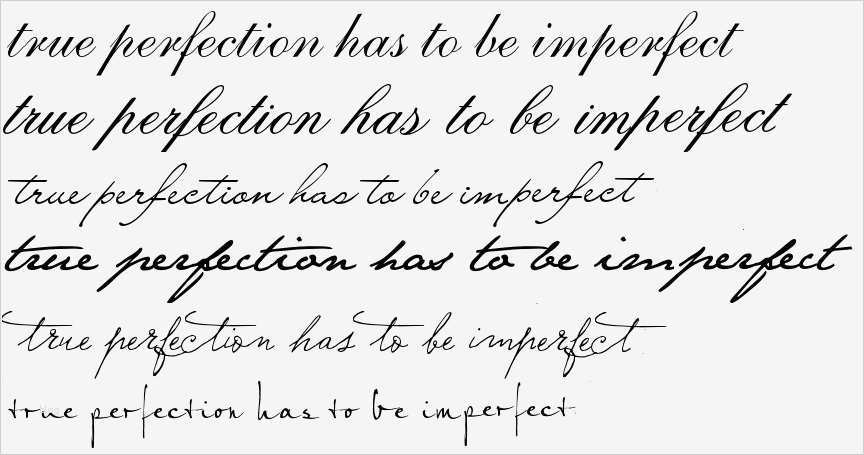 true perfection has to be imperfect
true perfection has to be imperfect
true perfection has to be imperfect
true perfection has to be imperfect
true perfection has to be imperfect
true perfection has to be imperfect